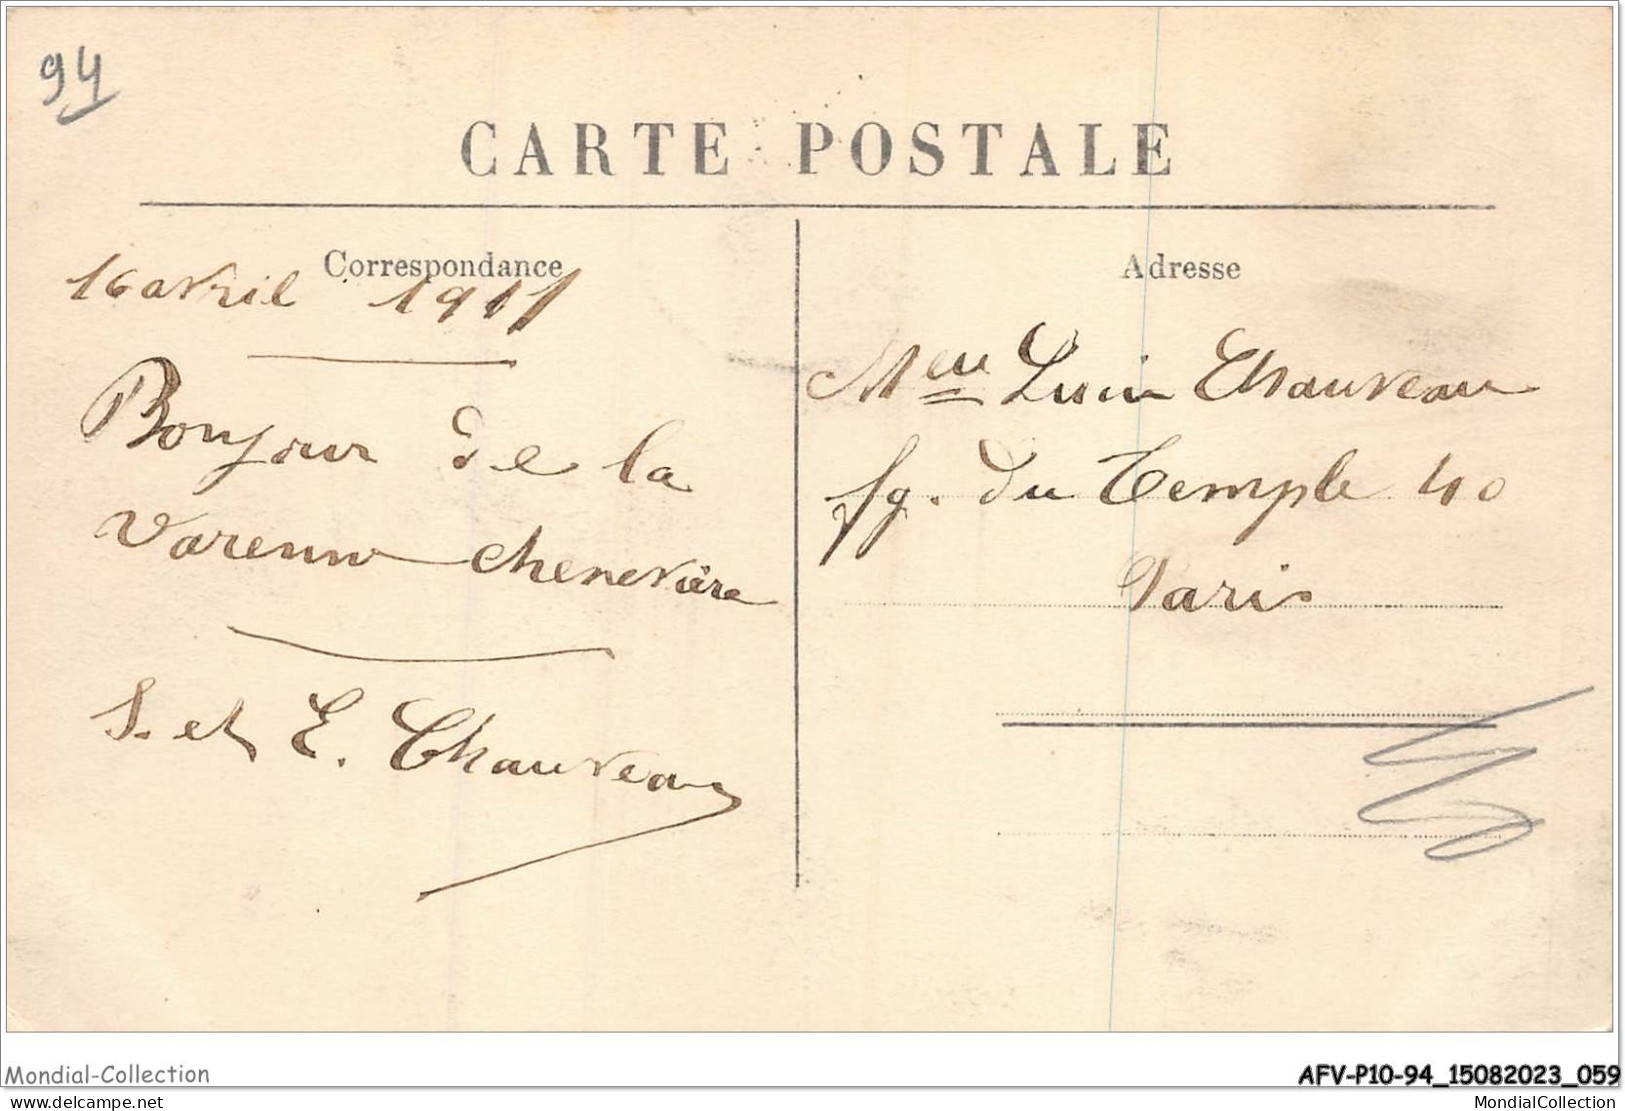 94
CARTE POSTALE
Correspondance
16 avril 1911
Bonjour de la
Varenne chenevière
S. et E. Chauveau
Adresse
Chauveau
fg. du Temple 40
Paris
Mondial-Collection
AFV-P10-94_15082023_059
delcampe.net
MondialCollection